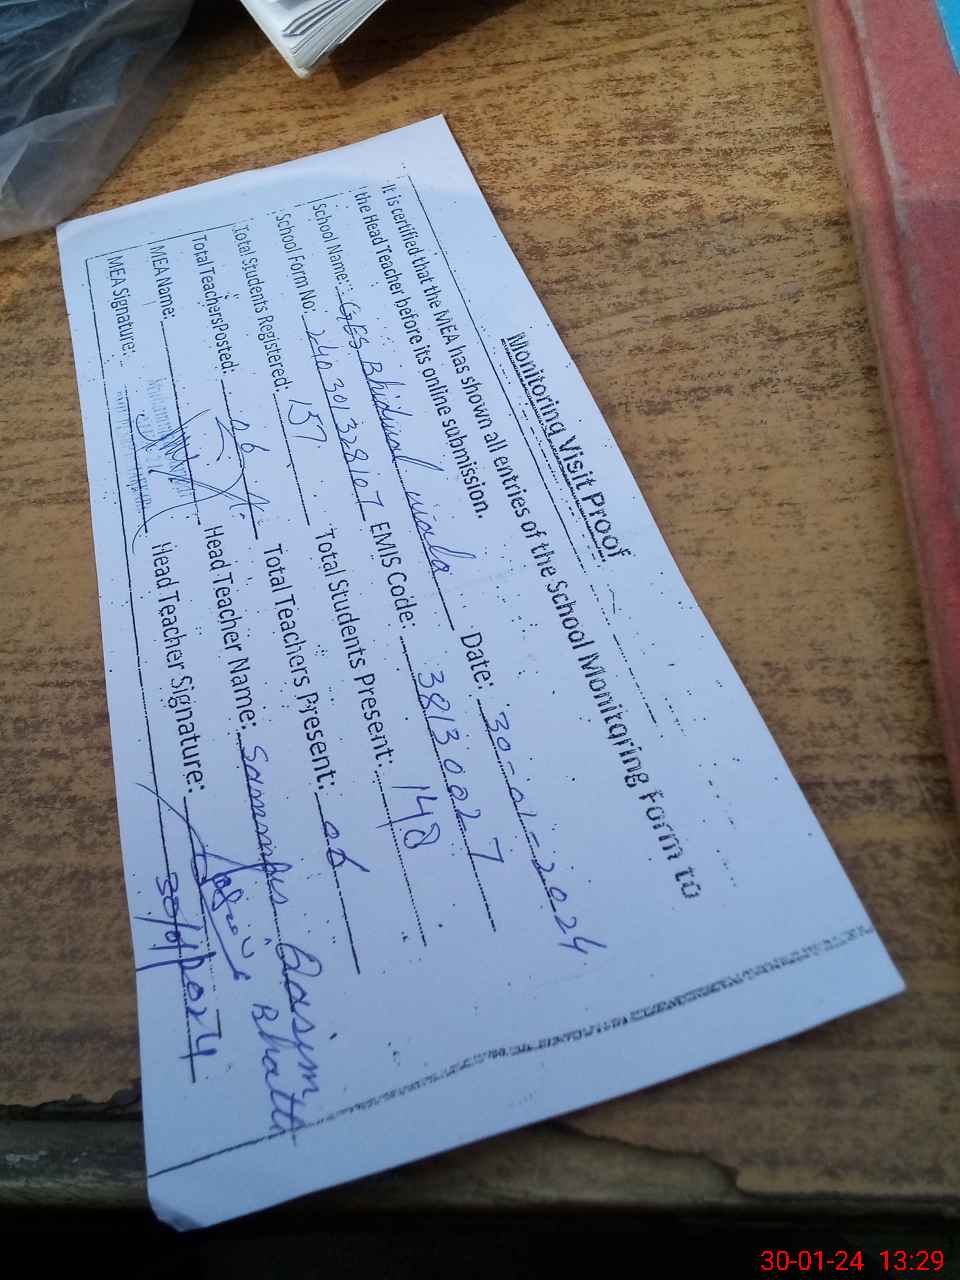 Monitoring Visit Proof
It is certified that the MEA has shown all entries of the School Monitoring Form to
the Head Teacher before its online submission.
School Name: GES Bhidwal wala Date: 30-01-2024
School Form No: 240301328107 EMIS Code: 38130027
Total Students Registered: 157 Total Students Present: 148
Total Teachers Posted: 06 Total Teachers Present: 06
MEA Name: Head Teacher Name: Qasim Bhatti
MEA Signature: Head Teacher Signature:
30/01/2024
30-01-24 13:29